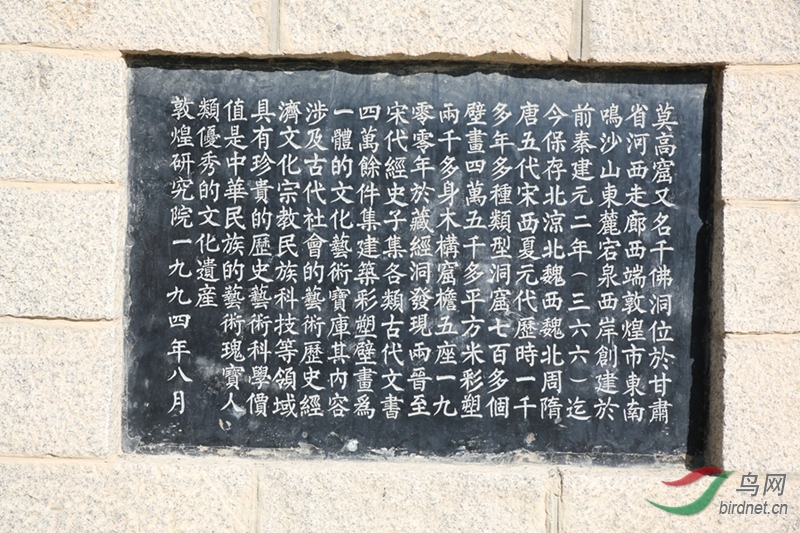 莫高窟又名千佛洞位於甘肅
省河西走廊西端敦煌市東南
鳴沙山東麓宕泉西岸創建於
前秦建元二年(三六六)迄
今保存北涼北魏西魏北周隋
唐五代宋西夏元代歷時一千
多年多種類型洞窟七百多個
壁畫四萬五千多平方米彩塑
兩千多身木構窟檐五座一九
零零年於藏經洞發現兩晉至
宋代經史子集各類古代文書
四萬餘件集建築彩塑壁畫為
一體的文化藝術寶庫其內容
涉及古代社會的藝術歷史經
濟文化宗教民族科技等領域
具有珍貴的歷史藝術科學價
值是中華民族的藝術瑰寶人
類優秀的文化遺産
敦煌研究院一九九四年八月
鸟网
birdnet.cn